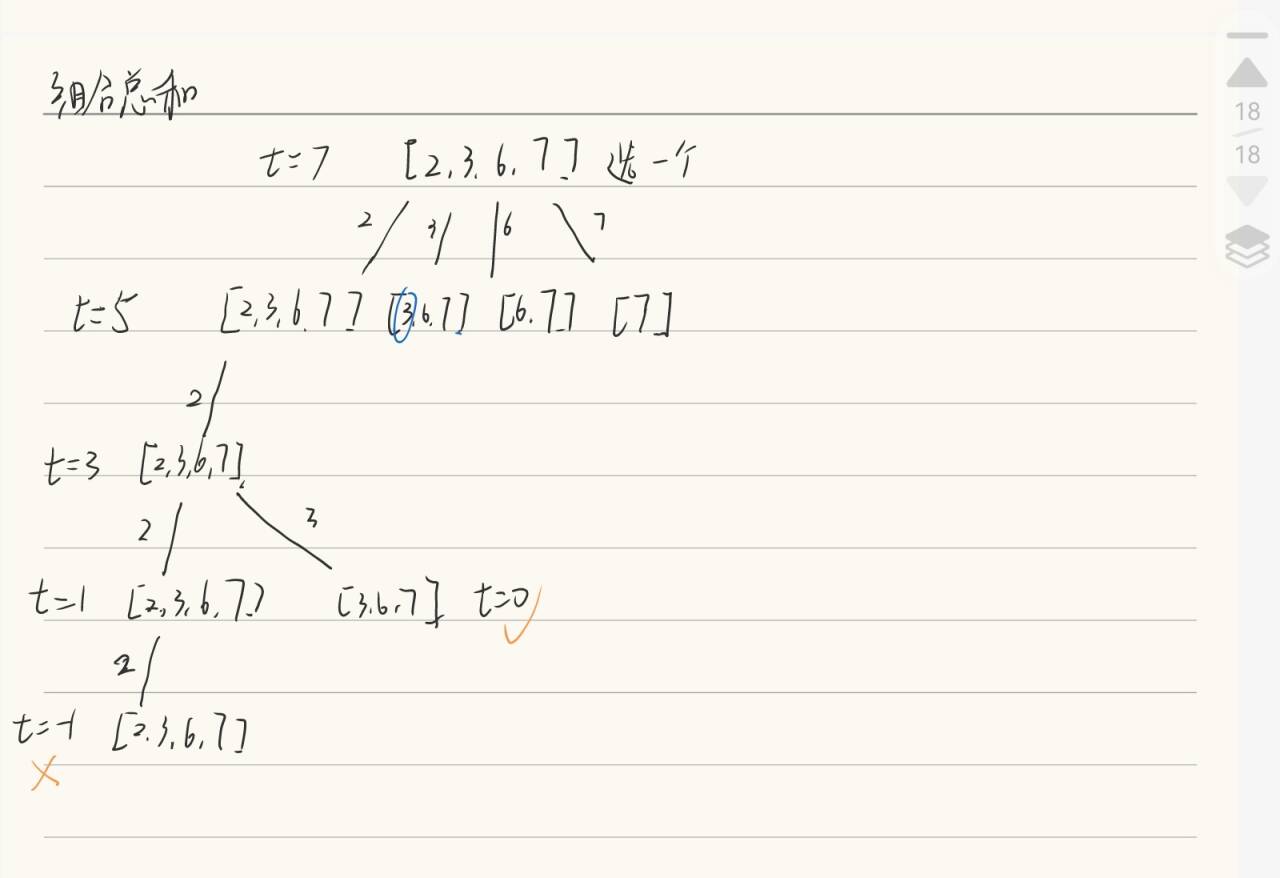 组合总和
t=7 [2,3,6,7] 选一个
2 3 6 7
t=5 [2,3,6,7] [3,6,7] [6,7] [7]
2
t=3 [2,3,6,7]
2 3
t=1 [2,3,6,7] [3,6,7] t=0
2
t=-1 [2,3,6,7]
18
18